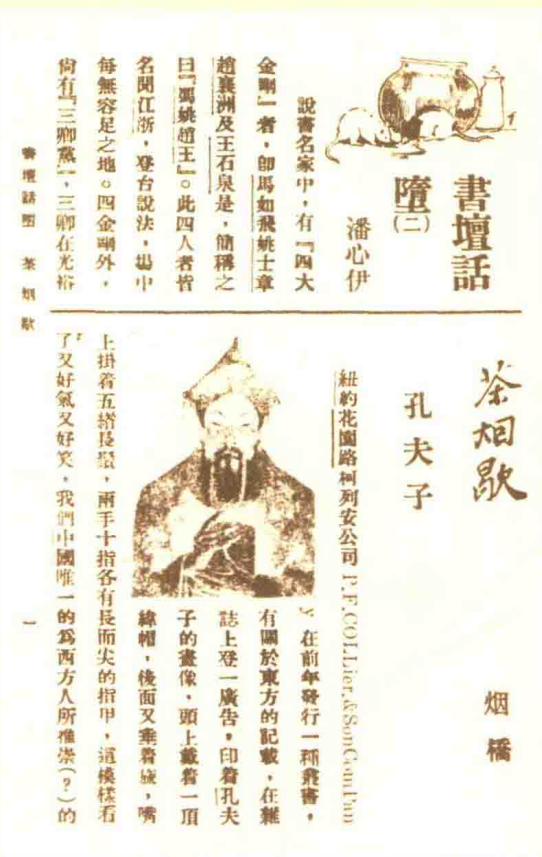 書壇話
墮(二)
潘心伊
說書名家中,有『四大
金剛』者,卽馬如飛姚士章
趙襄洲及王石泉是,簡稱之
曰『馬姚趙王』。此四人者皆
名聞江浙,登台說法,場中
每無容足之地。四金剛外,
尙有『三卿黨』,三卿在光裕
茶烟歇
烟橋
孔夫子
紐約花園路柯列安公司 P.F.COLLier,&SonComPan
y 在前年發行一種叢書,
有關於東方的記載,在雜
誌上登一廣告,印着孔夫
子的畫像,頭上戴着一頂
緯帽,後面又垂着 ,嘴
上掛着五綹長鬚,兩手十指各有長而尖的指甲,這模樣看
了又好氣又好笑,我們中國唯一的爲西方人所推崇(?)的
書壇話墮 茶烟歇
一